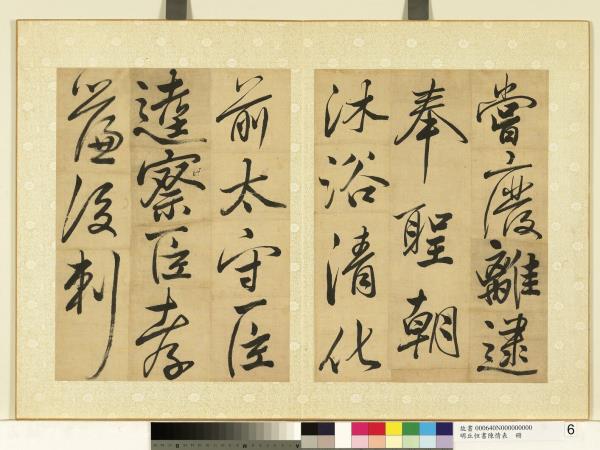 嘗廢離逮
奉聖朝
沐浴清化
前太守臣
逵察臣孝
廉後刺
故書 000640N000000000
明丘恒書陳情表 冊
6